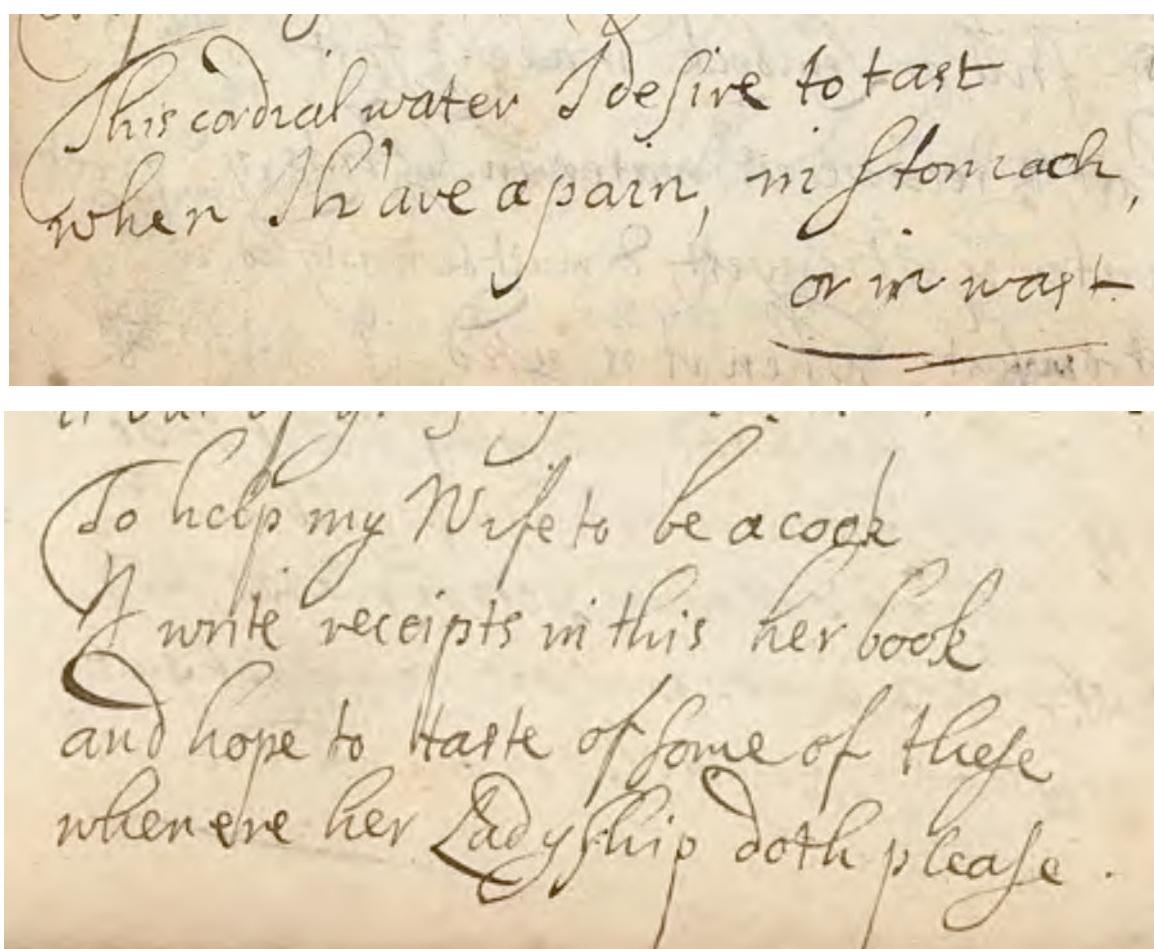 This cordial water I desire to tast
when I have a pain, in Stomach,
or in wast
To help my Wife to be a cook
I write receipts in this her book
and hope to taste of some of these
when ere her Ladyship doth please.